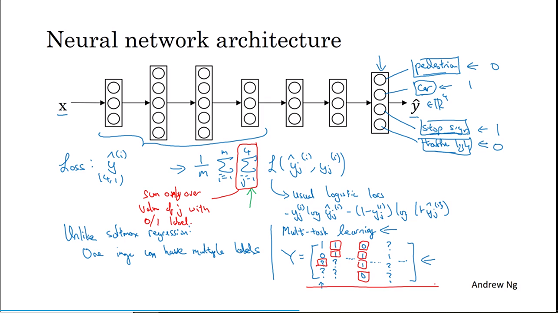 Neural network architecture
pedestrian ← 0
car ← 1
x
ŷ ∈ ℝ⁴
stop sign ← 1
traffic light ← 0
Loss: ŷ^(i) → 1/m Σ_{i=1}^{m} Σ_{j=1}^{4} L(ŷ_j^(i), y_j^(i))
(4,1)
Sum only over
value of j with
0/1 label.
usual logistic loss
-y_j^(i) log ŷ_j^(i) - (1-y_j^(i)) log (1-ŷ_j^(i))
Unlike softmax regression:
One image can have multiple labels
Multi-task learning ←
Y = [
1 1 0 ?
0 1 1 ?
? ? 1
? ? 0 ?
] ←
Andrew Ng